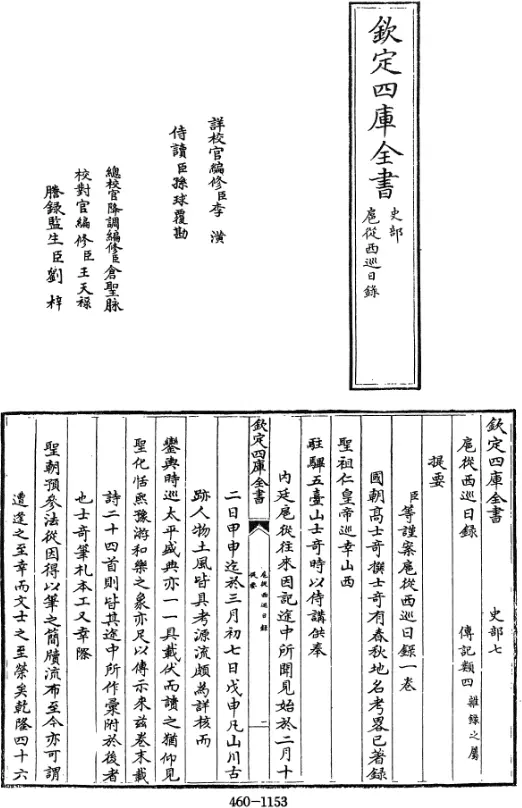 欽定四庫全書
史部
扈從西巡日錄
詳校官編修臣李潢
侍讀臣孫球覆勘
總校官降調編修臣倉聖脉
校對官編修臣王天祿
謄錄監生臣劉梓
欽定四庫全書 史部七
扈從西巡日錄 傳記類四 雜錄之屬
提要
臣等謹案扈從西巡日錄一卷
國朝高士奇撰士奇有春秋地名考畧已著錄
聖祖仁皇帝巡幸山西
駐驆五臺山士奇時以侍講供奉
内廷扈從往來因記途中所聞見始於二月十
欽定四庫全書 扈從西巡日錄 提要 二
二日甲申迄於三月初七日戊申凡山川古
跡人物土風皆具考源流頗為詳核而
鑾輿時巡太平盛典亦一一具載伏而讀之猶仰見
聖化恬熙豫游和樂之象亦足以傳示来兹卷末載
詩二十四首則皆其途中所作彚附於後者
也士奇筆札本工又幸際
聖朝預參法從因得以筆之簡牘流布至今亦可謂
遭逢之至幸而文士之至榮矣乾隆四十六
460-1153